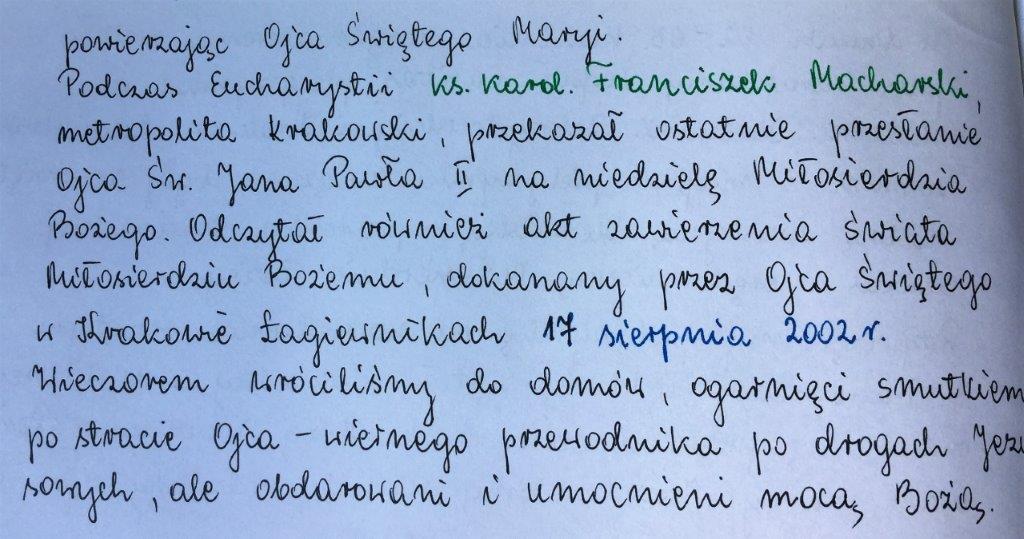 powierzając Ojca Świętego Maryi
Podczas Eucharystii ks. kard. Franciszek Macharski,
metropolita krakowski, przekazał ostatnie przesłanie
Ojca Św. Jana Pawła II na niedzielę Miłosierdzia
Bożego. Odczytał również akt zawierzenia świata
Miłosierdziu Bożemu, dokonany przez Ojca Świętego
w Krakowie Łagiewnikach 17 sierpnia 2002 r.
Wieczorem wróciliśmy do domów, ogarnięci smutkiem
po stracie Ojca - wiernego przewodnika po drogach Jezu
sowych, ale obdarowani i umocnieni mocą Bożą.